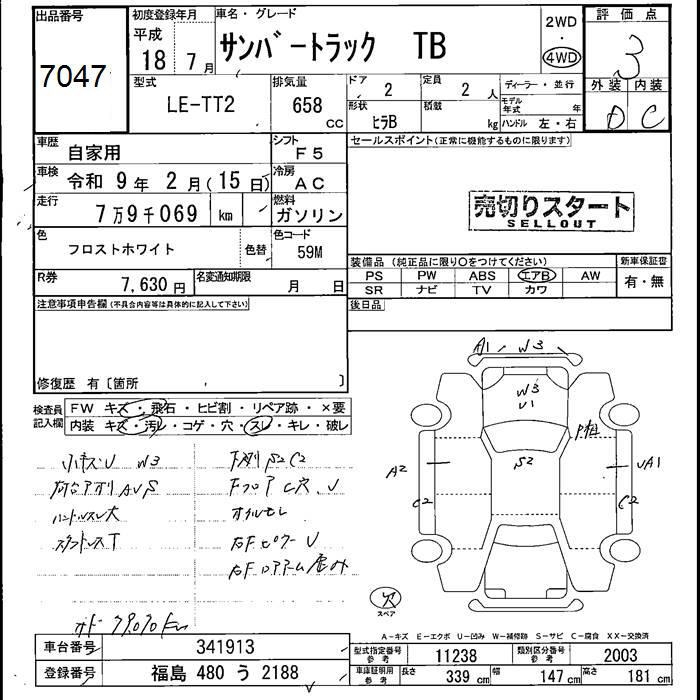 出品番号 7047
初度登録年月 平成 18年 7月
車名・グレード サンバートラック TB
2WD ・ 4WD
評価点 3
外装 D 内装 C
型式 LE-TT2
排気量 658 CC
ドア 2 定員 2人
形状 ヒラB 積載 kg
ディーラー・並行
モデル年式 年
ハンドル 左・右
車歴 自家用
シフト F5
車検 令和 9年 2月(15日)
冷房 AC
走行 7万9千069 km
燃料 ガソリン
色 フロストホワイト 色替
色コード 59M
R券 7,630円
名変通知期限 月 日
セールスポイント(正常に機能するものに限ります)
売切りスタート
SELLOUT
装備品(純正品に限り○をつけてください)
PS PW ABS エアB AW
SR ナビ TV カワ
新車保証書 有・無
後日品
注意事項申告欄(不具合内容等は具体的に記入して下さい)
修復歴 有〔箇所 〕
検査員記入欄
FW キズ・飛石・ヒビ割・リペア跡・×要
内装 キズ・汚レ・コゲ・穴・スレ・キレ・破レ
小キズU W3
ハンドルスレ大
FフロアC穴、U
オイルモレ
オド 79070km
A1 W3
W3
U1
S2
A2
C2
UA1
C2
スペア
A-キズ E-エクボ U-凹み W-補修跡 S-サビ C-腐食 XX-交換済
車台番号 341913
登録番号 福島 480 う 2188
型式指定番号 参考 11238
類別区分番号 参考 2003
車庫証明用 参考 長さ 339 cm 幅 147 cm 高さ 181 cm